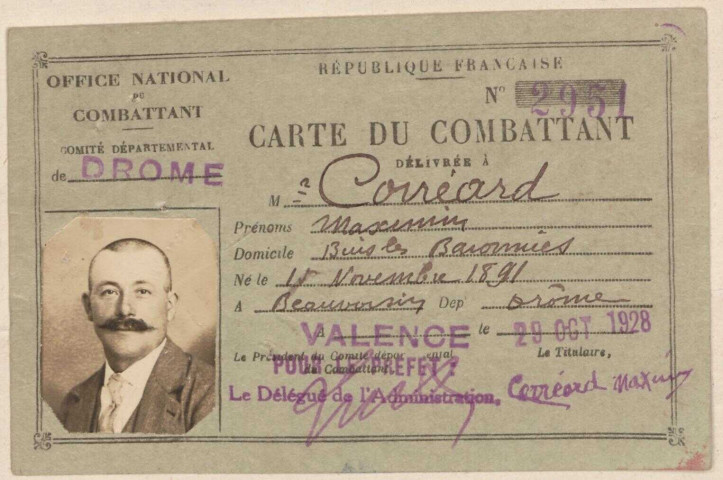 OFFICE NATIONAL
DU
COMBATTANT
COMITÉ DÉPARTEMENTAL
de DROME
RÉPUBLIQUE FRANÇAISE
N° 2951
CARTE DU COMBATTANT
DÉLIVRÉE À
M r Corréard
Prénoms Maximin
Domicile Buis les Baronnies
Né le 15 Novembre 1891
A Beauvoisin Dep' Drôme
A VALENCE le 29 OCT 1928
Le Président du Comité départ
du Combattant,
POUR LE PREFET:
Le Délégué de l'Administration,
Le Titulaire,
Corréard Maximin